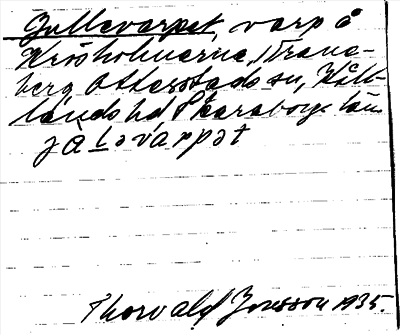 Gullevarpet, varp å
Krösholmarna, Trane-
berg Otterstads sn, Kåll-
lands hd Skaraborgs län
gàLəvárpət
Thorvald Jonsson 1935.